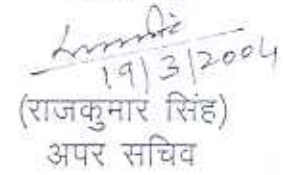 19/3/2004
(राजकुमार सिंह)
अपर सचिव